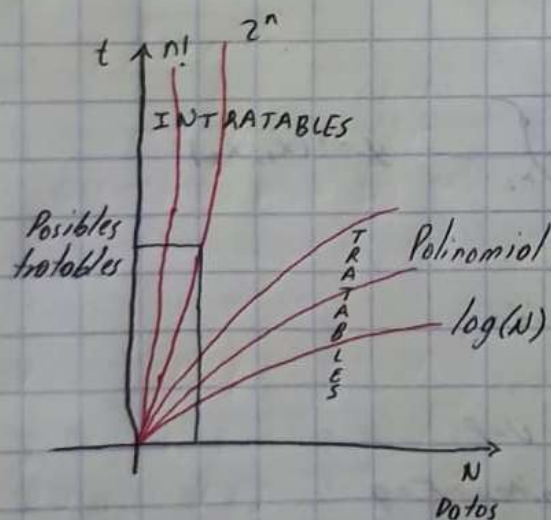 t
n!
2^n
INTRATABLES
Posibles
tratables
TRATABLES
Polinomial
log(N)
N
Datos